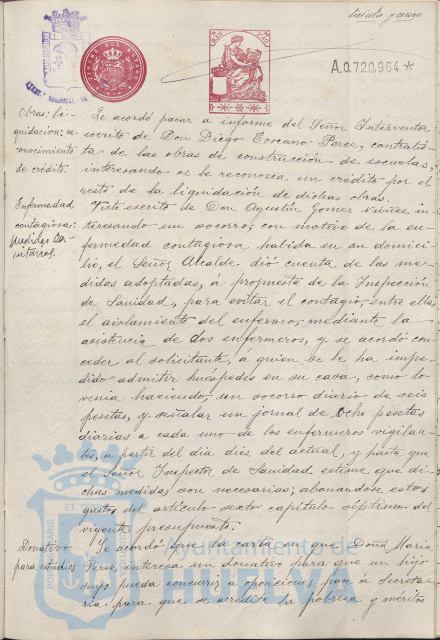 treinta y cinco
A.0.720,964 *
Obras: li-
quidacion; re-
conocimiento
de crédito.
Se acordó pasar a informe del Señor Interventor
escrito de Don Diego Toscano Perez, contratis-
ta de las obras de construcción de escuelas,
interesando se le reconozca un crédito por el
resto de la liquidación de dichas obras.
Enfermedad
contagiosa:
Medidas sa-
nitarias.
Visto escrito de Don Agustín Gomez Núñez, in-
teresando un socorro, con motivo de la en-
fermedad contagiosa habida en su domici-
lio, el Señor Alcalde dió cuenta de las me-
didas adoptadas, a propuesta de la Inspección
de Sanidad, para evitar el contagio, entre ellas
el aislamiento del enfermo, mediante la
asistencia de dos enfermeros, y se acordó con-
ceder al solicitante, a quien se le ha impe-
dido admitir huéspedes en su casa, como lo
venia haciendo, un socorro diario de seis
pesetas, y señalar un jornal de ocho pesetas
diarias a cada uno de los enfermeros vigilan-
tes, a partir del dia diez del actual, y hasta que
el Señor Inspector de Sanidad estime que di-
chas medidas son necesarias; abonandose estos
gastos del articulo sexto capitulo septimo del
vigente presupuesto.
Donativo
para estudios
Se acordó que la carta en que Doña Maria
Perez, interesa un donativo para que un hijo
suyo pueda concurrir a oposiciones para Secreta-
ria para que se acredite la pobreza y méritos
Ayuntamiento de
HUELVA